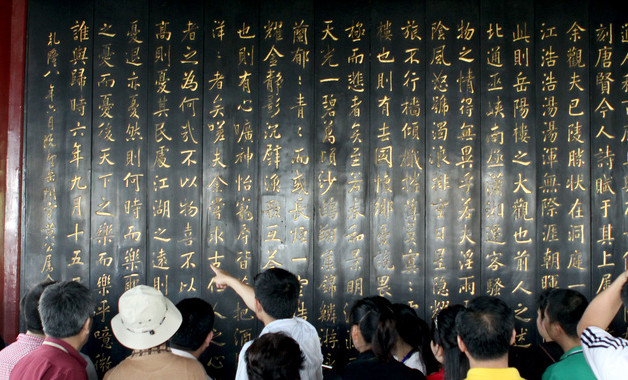 刻唐賢今人詩賦於其上屬
余觀夫巴陵勝狀在洞庭一
江浩浩湯湯渾無際涯朝暉
此則岳陽樓之大觀也前人之述
北通巫峽南極瀟湘遷客騷
物之情得無異乎若夫淫雨
陰風怒號濁浪排空日星隱耀
旅不行檣傾楫摧薄暮冥
樓也則有去國懷鄉憂讒畏
極而悲者矣至若春和景明
天光一碧萬頃沙鷗翔集錦鱗
蘭郁=青=而或長煙一空
耀金靜影沉璧漁歌互答
也則有心曠神怡寵辱皆忘把酒
洋=者矣嗟夫余嘗求古仁人之心
者之為何哉不以物喜不以
高則憂其民處江湖之遠則
憂退亦憂然則何時而樂
之憂而憂後天下之樂而樂乎噫微
誰與歸時六年九月十五
乾隆八年